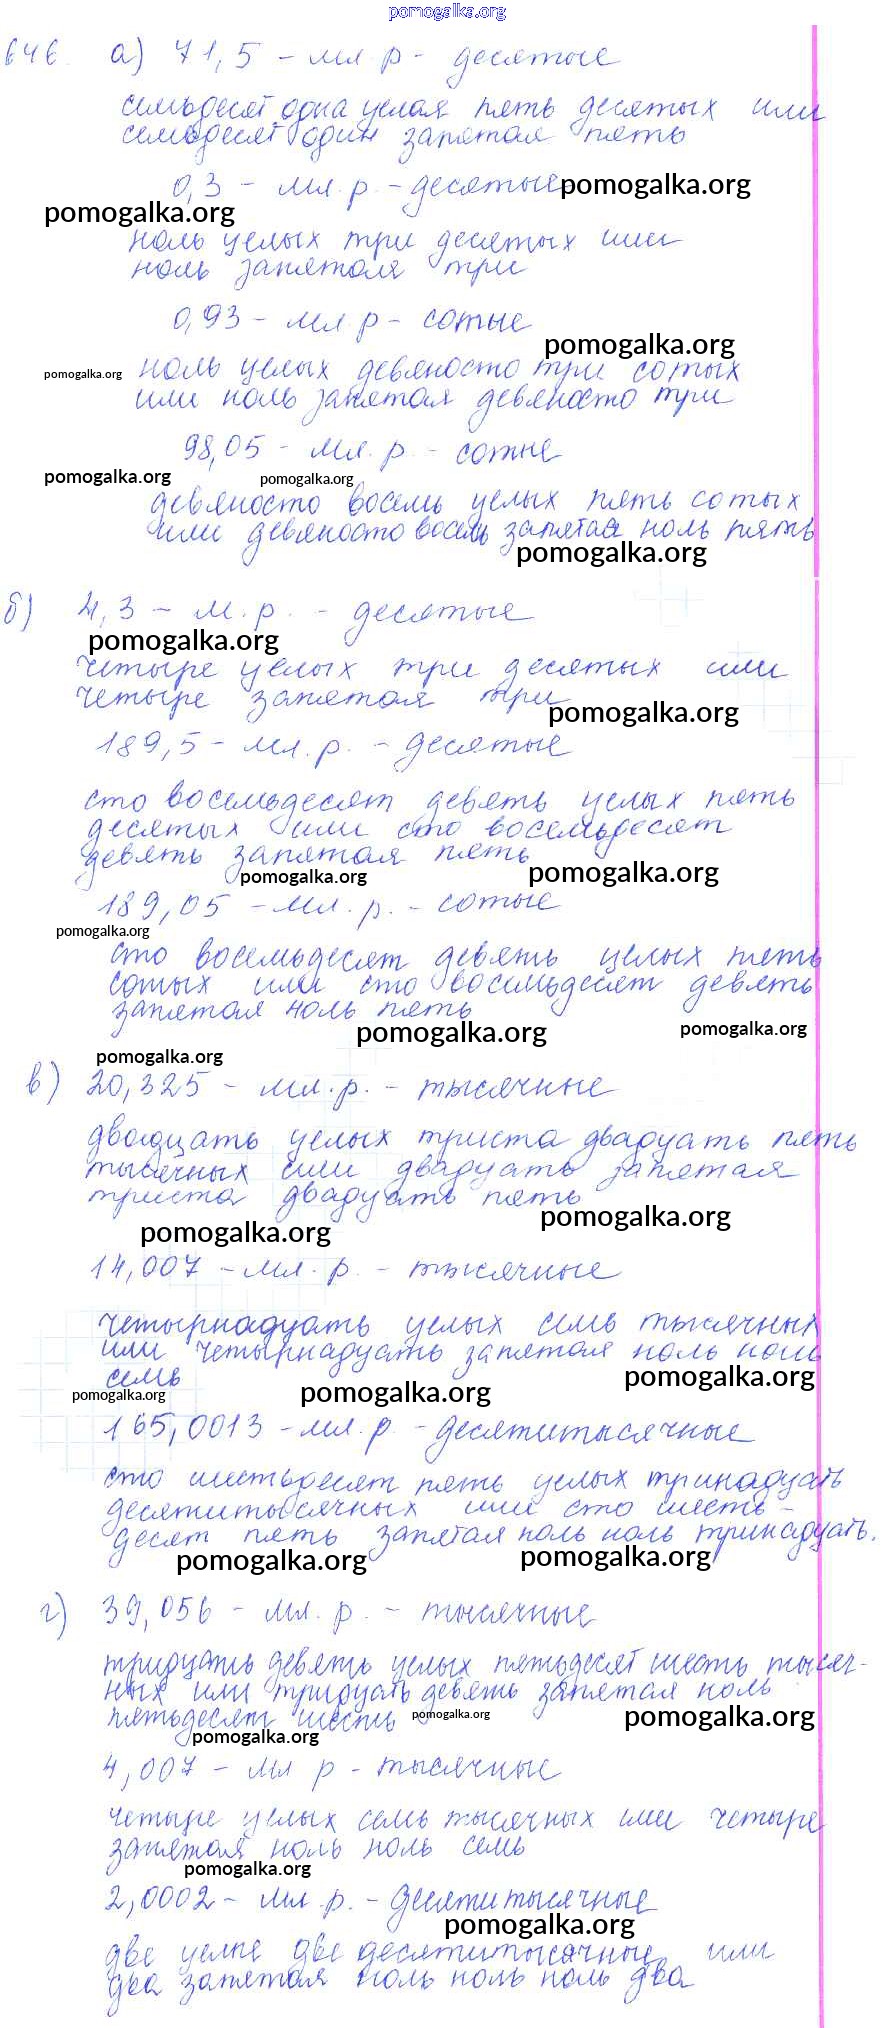 pomogalka.org
646. а) 71,5 - мл.р - десятые
семьдесят одна целая пять десятых или
семьдесят один запятая пять
0,3 - мл.р. - десятые
pomogalka.org
pomogalka.org
ноль целых три десятых или
ноль запятая три
0,93 - мл.р - сотые
pomogalka.org
pomogalka.org
ноль целых девяносто три сотых
или ноль запятая девяносто три
98,05 - мл.р. - сотые
pomogalka.org
pomogalka.org
девяносто восемь целых пять сотых
или девяносто восемь запятая ноль пять
pomogalka.org
б) 4,3 - м.р. - десятые
pomogalka.org
четыре целых три десятых или
четыре запятая три
pomogalka.org
189,5 - мл.р. - десятые
сто восемьдесят девять целых пять
десятых или сто восемьдесят
девять запятая пять
pomogalka.org
pomogalka.org
189,05 - мл.р. - сотые
pomogalka.org
сто восемьдесят девять целых пять
сотых или сто восемьдесят девять
запятая ноль пять
pomogalka.org
pomogalka.org
pomogalka.org
в) 20,325 - мл.р. - тысячные
двадцать целых триста двадцать пять
тысячных или двадцать запятая
триста двадцать пять
pomogalka.org
pomogalka.org
14,007 - мл.р. - тысячные
четырнадцать целых семь тысячных
или четырнадцать запятая ноль ноль
семь
pomogalka.org
pomogalka.org
pomogalka.org
165,0013 - мл.р. - десятитысячные
сто шестьдесят пять целых тринадцать
десятитысячных или сто шесть-
десят пять запятая ноль ноль тринадцать.
pomogalka.org
pomogalka.org
г) 39,056 - мл.р. - тысячные
тридцать девять целых пятьдесят шесть тысяч-
ных или тридцать девять запятая ноль
пятьдесят шесть
pomogalka.org
pomogalka.org
pomogalka.org
4,007 - мл р - тысячные
четыре целых семь тысячных или четыре
запятая ноль ноль семь
pomogalka.org
2,0002 - мл.р. - десятитысячные
pomogalka.org
две целые две десятитысячные или
два запятая ноль ноль ноль два